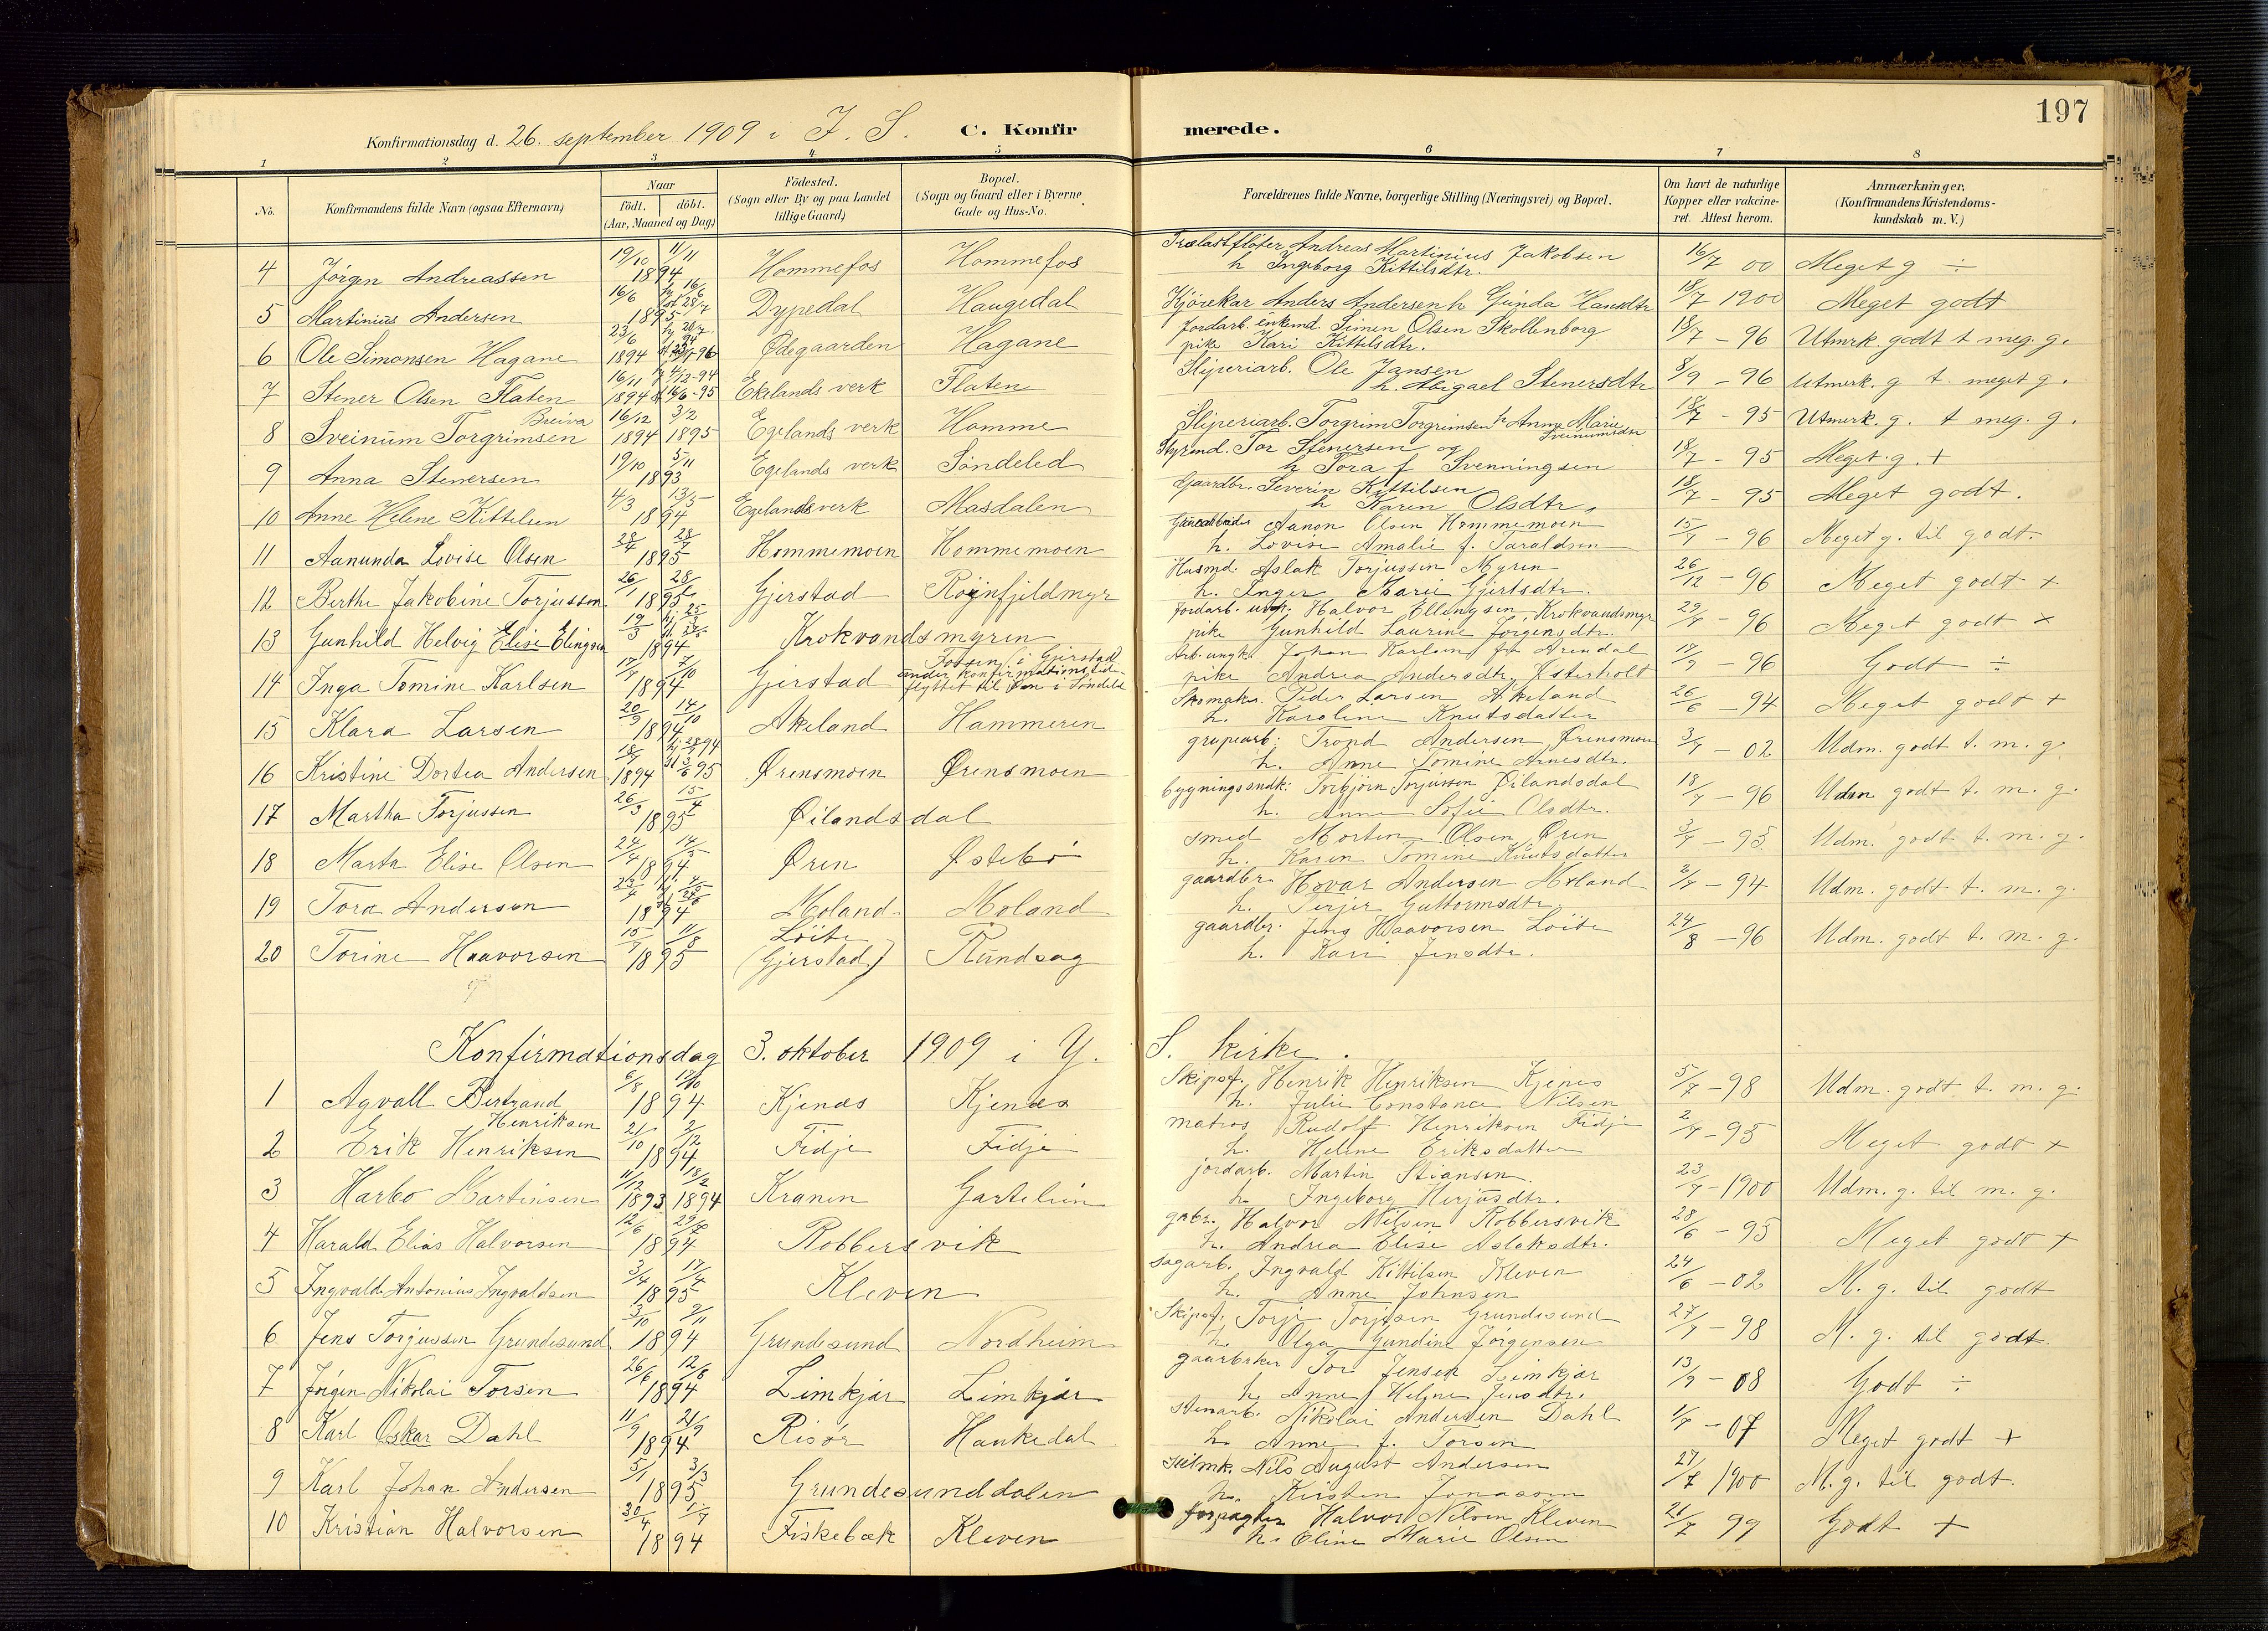 197
Konfirmationsdag d. 26. september 1909 i I. S. C. Konfirmerede.
1 2 3 4 5 6 7 8
No. Konfirmandens fulde Navn (ogsaa Efternavn) Naar födt. döbt. (Aar, Maaned og Dag) Födested. (Sogn eller By og paa Landet tillige Gaard) Bopæl. (Sogn og Gaard eller i Byerne Gade og Hus-No. Forældrenes fulde Navne, borgerlige Stilling (Næringsvei) og Bopæl. Om havt de naturlige Kopper eller vakcineret. Attest herom. Anmærkninger, (Konfirmandens Kristendomskundskab m. V.)
4 Jörgen Andreassen 19/10 11/11 1894 Hommefos Hommefos Trælastfløter Andreas Martinius Jakobsen h Ingeborg Kittilsdtr. 16/7 00 Meget g ÷
5 Martinius Andersen 16/6 1895 Dypedal Haugedal Kjörekar Anders Andersen h Gunda Hansdtr 18/7 1900 Meget godt
6 Ole Simonsen Hagane 23/6 1894 Ødegaarden Hagane Jordarb. enkemd. Simen Olsen Skollenborg pike Kari Kittilsdtr. 18/7 - 96 Utmrk. godt t meg. g.
7 Stener Olsen Flaten 16/11 1894 4/12-94 16/6-95 Ekelands verk Flaten Sliperiarb. Ole Jansen h. Abigael Stenersdtr 8/9 - 96 Utmerk. g t. meget g.
8 Sveinum Torgrimsen Breiva 16/12 1894 3/2 1895 Egelands verk Homme Sliperiarb. Torgrim Torgrimsen h Anne Marie Sveinumsdtr 18/7 - 95 Utmerk. g. t meg. g.
9 Anna Stenersen 19/10 5/11 1893 Egelands verk Söndeled Styrmd. Tor Stenersen og h Tora f Svenningsen 18/7 - 95 Meget. g. +
10 Anne Helene Kittelsen 4/3 13/5 1894 Egelandsverk Masdalen Gaardbr. Severin Kittilsen h Karen Olsdtr. 18/7 - 95 Meget godt.
11 Aanunda Lovise Olsen 28/4 28/7 1895 Hommemoen Hommemoen Aanon Olsen Hommemoen h. Lovise Amalie f. Taraldsen 15/7 - 96 Meget g. til godt.
12 Berthe Jakobine Torjussen 26/1 1895 Gjerstad Röinfjeldmyr Husmd. Aslak Torjussen Myren h. Inger Marie Gjertsdtr. 26/12 - 96 Meget godt +
13 Gunhild Helvig Elise Elingsen 19/3 1894 Krokvandsmyren Jordarb. Halvor Ellingsen, Krokvandsmyr pike Gunhild Laurine Jörgensdtr. 29/7 - 96 Meget godt +
14 Inga Tomine Karlsen 17/7 7/10 1894 Gjerstad Fossen i Gjerstad under konfirmationstiden flyttet til Øen i Söndeled Arb. ungk. Johan Karlsen fr Arendal pike Andrea Andersdtr. Østerholt 17/9 - 96 Godt ÷
15 Klara Larsen 20/9 14/10 1894 Akeland Hammeren Skomaker Peder Larsen Akeland h. Karoline Knutsdatter 26/6 - 94 Meget godt +
16 Kristine Dortea Andersen 18/7 1894 Ørensmoen Ørensmoen grupearb: Trond Andersen Ørensmoen h. Anne Tomine Arnesdtr. 3/7 - 02 Udm. godt t. m. g.
17 Martha Torjussen 26/3 15/4 1895 Øilandsdal bygningssndk: Torbjörn Torjussen Øilandsdal h. Anne Sofie Olsdtr. 18/7 - 96 Udm godt t. m. g.
18 Marta Elise Olsen 24/4 14/5 1894 Øren Østebö smed Morten Olsen Øren h. Karen Tomine Knutsdatter 3/7 - 95 Udm. godt t. m. g.
19 Tora Andersen 23/4 1894 Moland Moland gaardbr. Hovar Andersen Moland h. Terjer Guttormsdtr. 2/7 - 94 Udm. godt t. m. g.
20 Torine Haavorsen 15/7 11/8 1895 Löite (Gjerstad) Rundsag gaardbr. Jens Haavorsen Löite h. Kari Jensdtr. 24/8 - 96 Udm. godt t. m. g.
Konfirmationsdag 3. oktober 1909 i Y. S. kirke.
1 Agvall Bertrand Henriksen 6/8 1894 Kjenæs Kjenæs Skipsf. Henrik Henriksen Kjenes h. Julie Constance Nilsen 5/7 - 98 Udm. godt t. m. g.
2 Erik Henriksen 21/10 2/12 1894 Fidje Fidje matros Rudolf Henriksen Fidje h. Helene Eriksdatter 2/7 - 95 Meget godt +
3 Harbo Martinsen 11/12 1893 18/2 1894 Kranen Gartelien jordarb. Martin Stiansen h. Ingeborg Herjusdtr. 23/7 - 1900 Udm. g. til m. g.
4 Harald Elias Halvorsen 12/6 1894 Robbersvik grbr. Halvor Nilsen Robbersvik h. Andrea Elise Aslaksdtr. 28/6 - 95 Meget godt +
5 Ingvald Antonius Ingvaldsen 3/4 17/4 1895 Kleven sagarb. Ingvald Kittilsen Kleven h. Anne Johnsen 24/6 - 02 M. g. til godt
6 Jens Torjussen Grundesund 3/10 2/11 1894 Grundesund Nordheim Skipsf. Torje Torjesen Grundesund h. Olga Gundine Jörgensen 27/7 - 98 M. g. til godt.
7 Jörgen Nikolai Torsen 26/6 12/8 1894 Limkjær Limkjær gaarbruker Tor Jensen Limkjær h. Anne Helene Jensdtr. 13/9 - 08 Godt ÷
8 Karl Oskar Dahl 11/9 21/9 1894 Risör Haukedal stenarb. Nikolai Andersen Dahl h. Anne f. Torsen 1/7 - 07 Meget godt +
9 Karl Johan Andersen 5/1 3/3 1895 Grundesunddalen Nils August Andersen h. Kirsten Jonasson 27/7 1900 M. g. til godt.
10 Kristian Halvorsen 30/4 1/7 1894 Fiskebæk Kleven forpagter Halvor Nilsen Kleven h. Eline Marie Olsen 21/7 99 Godt +